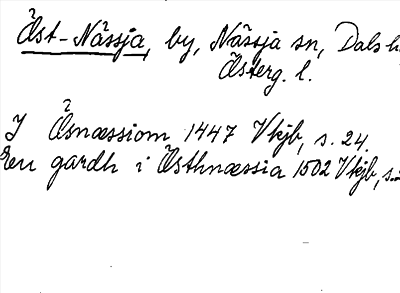 Öst-Nässja, by, Nässja sn, Dals h
Österg. l.
I Ösnæssiom 1447 Vkjb, s. 24.
Een gardh i Östhnæssia 1502 Vkjb, s.